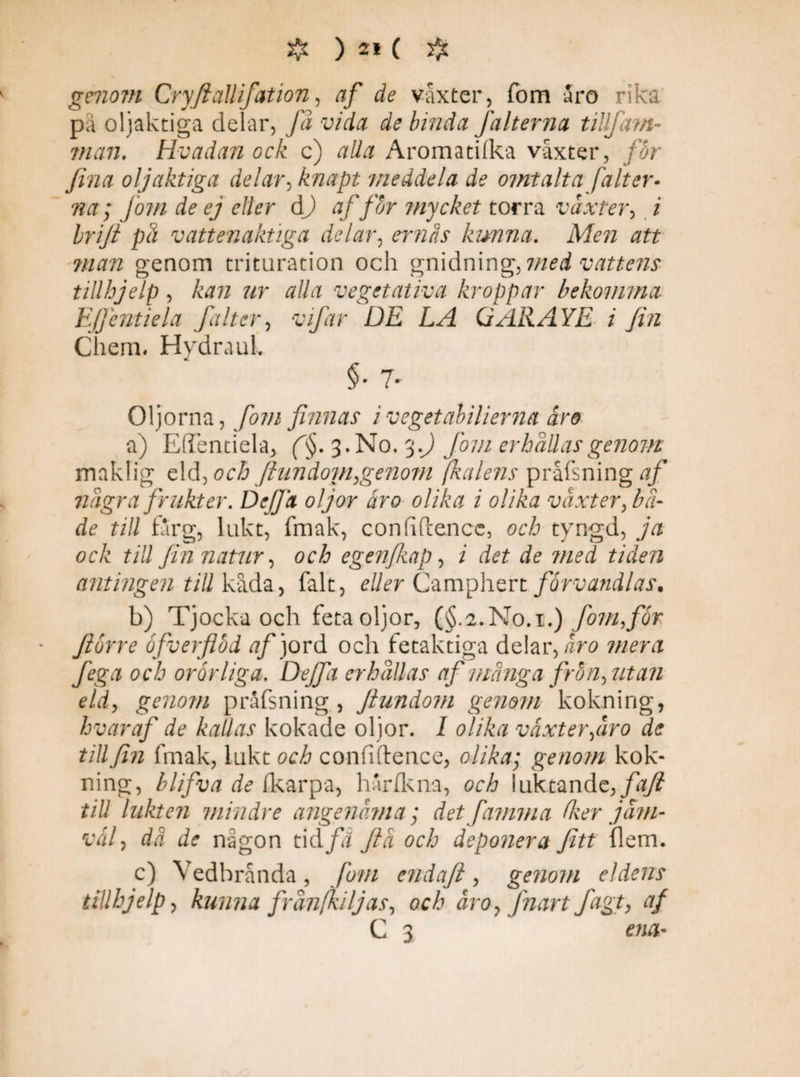 ☆ ) 21 ( ☆
genom Cryſtalliſation, af de våxter, ſom åro rika
på oljaktiga delar, få vida de binda ſalterna tillſam-
man. Hvadan ock c) alla Aromatiſka våxter, för
fina oljaktiga delar, knapt meddela de omtalta ſalter-
na; ſom de ej eller d) af för mycket torra våxter, i
briſt på vattenaktiga delar, ernås kunna. Men att
man genom trituration och gnidning, med vattens
tillhjelp, kan ur alla vegetativa kroppar bekomma
Eſſentiela ſalter, viſar DE LA GARAYE i ſin
Chem. Hydraul.
§. 7.
Oljorna, ſom finnas i vegetabilierna åro
a) Eſſentiela, (§. 3. No. 3.) ſom erhållas genom
maklig eld, och ſtundom, genom ſkalens pråſsning af
några frukter. Deſſa oljor åro olika i olika våxter, bå-
de till fårg, lukt, ſmak, conſiſtence, och tyngd, ja
ock till ſin natur, och egenſkap, i det de med tiden
antingen till kåda, ſalt, eller Camphert förvandlas.
b) Tjocka och feta oljor, (§.2.No.1.) ſom, för
ſtörre öfverflöd af jord och fetaktiga delar, åro mera
ſega och orörliga. Deſſa erhållas af många frön, utan
eld, genom pråſsning, ſtundom genom kokning,
hvaraf de kallas kokade oljor. I olika våxter, åro de
till ſin ſmak, lukt och conſiſtence, olika; genom kok-
ning, blifva de ſkarpa, hårſkna, och luktande, faſt
till lukten mindre angenåma; det ſamma ſker jåm-
vål, då de någon tid få ſtå och deponera ſitt ſlem.
c) Vedbrånda, ſom endaſt, genom eldens
tillhjelp, kunna frånſkiljas, och åro, ſnart ſagt, af
C 3 ena-